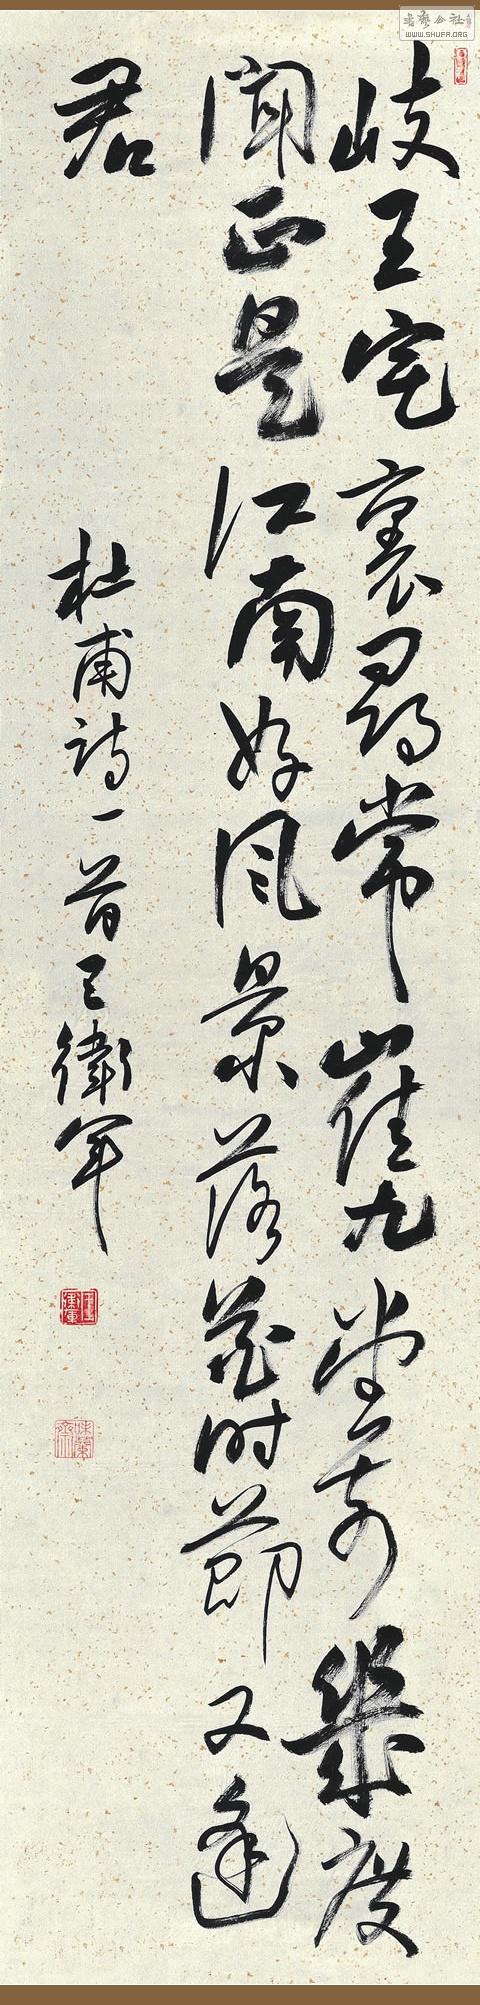 岐王宅裏尋常崔九堂前幾度
聞正是江南好风景落花时節又逢
君
杜甫詩一首王衛军
書藝公社
WWW.SHUFA.ORG